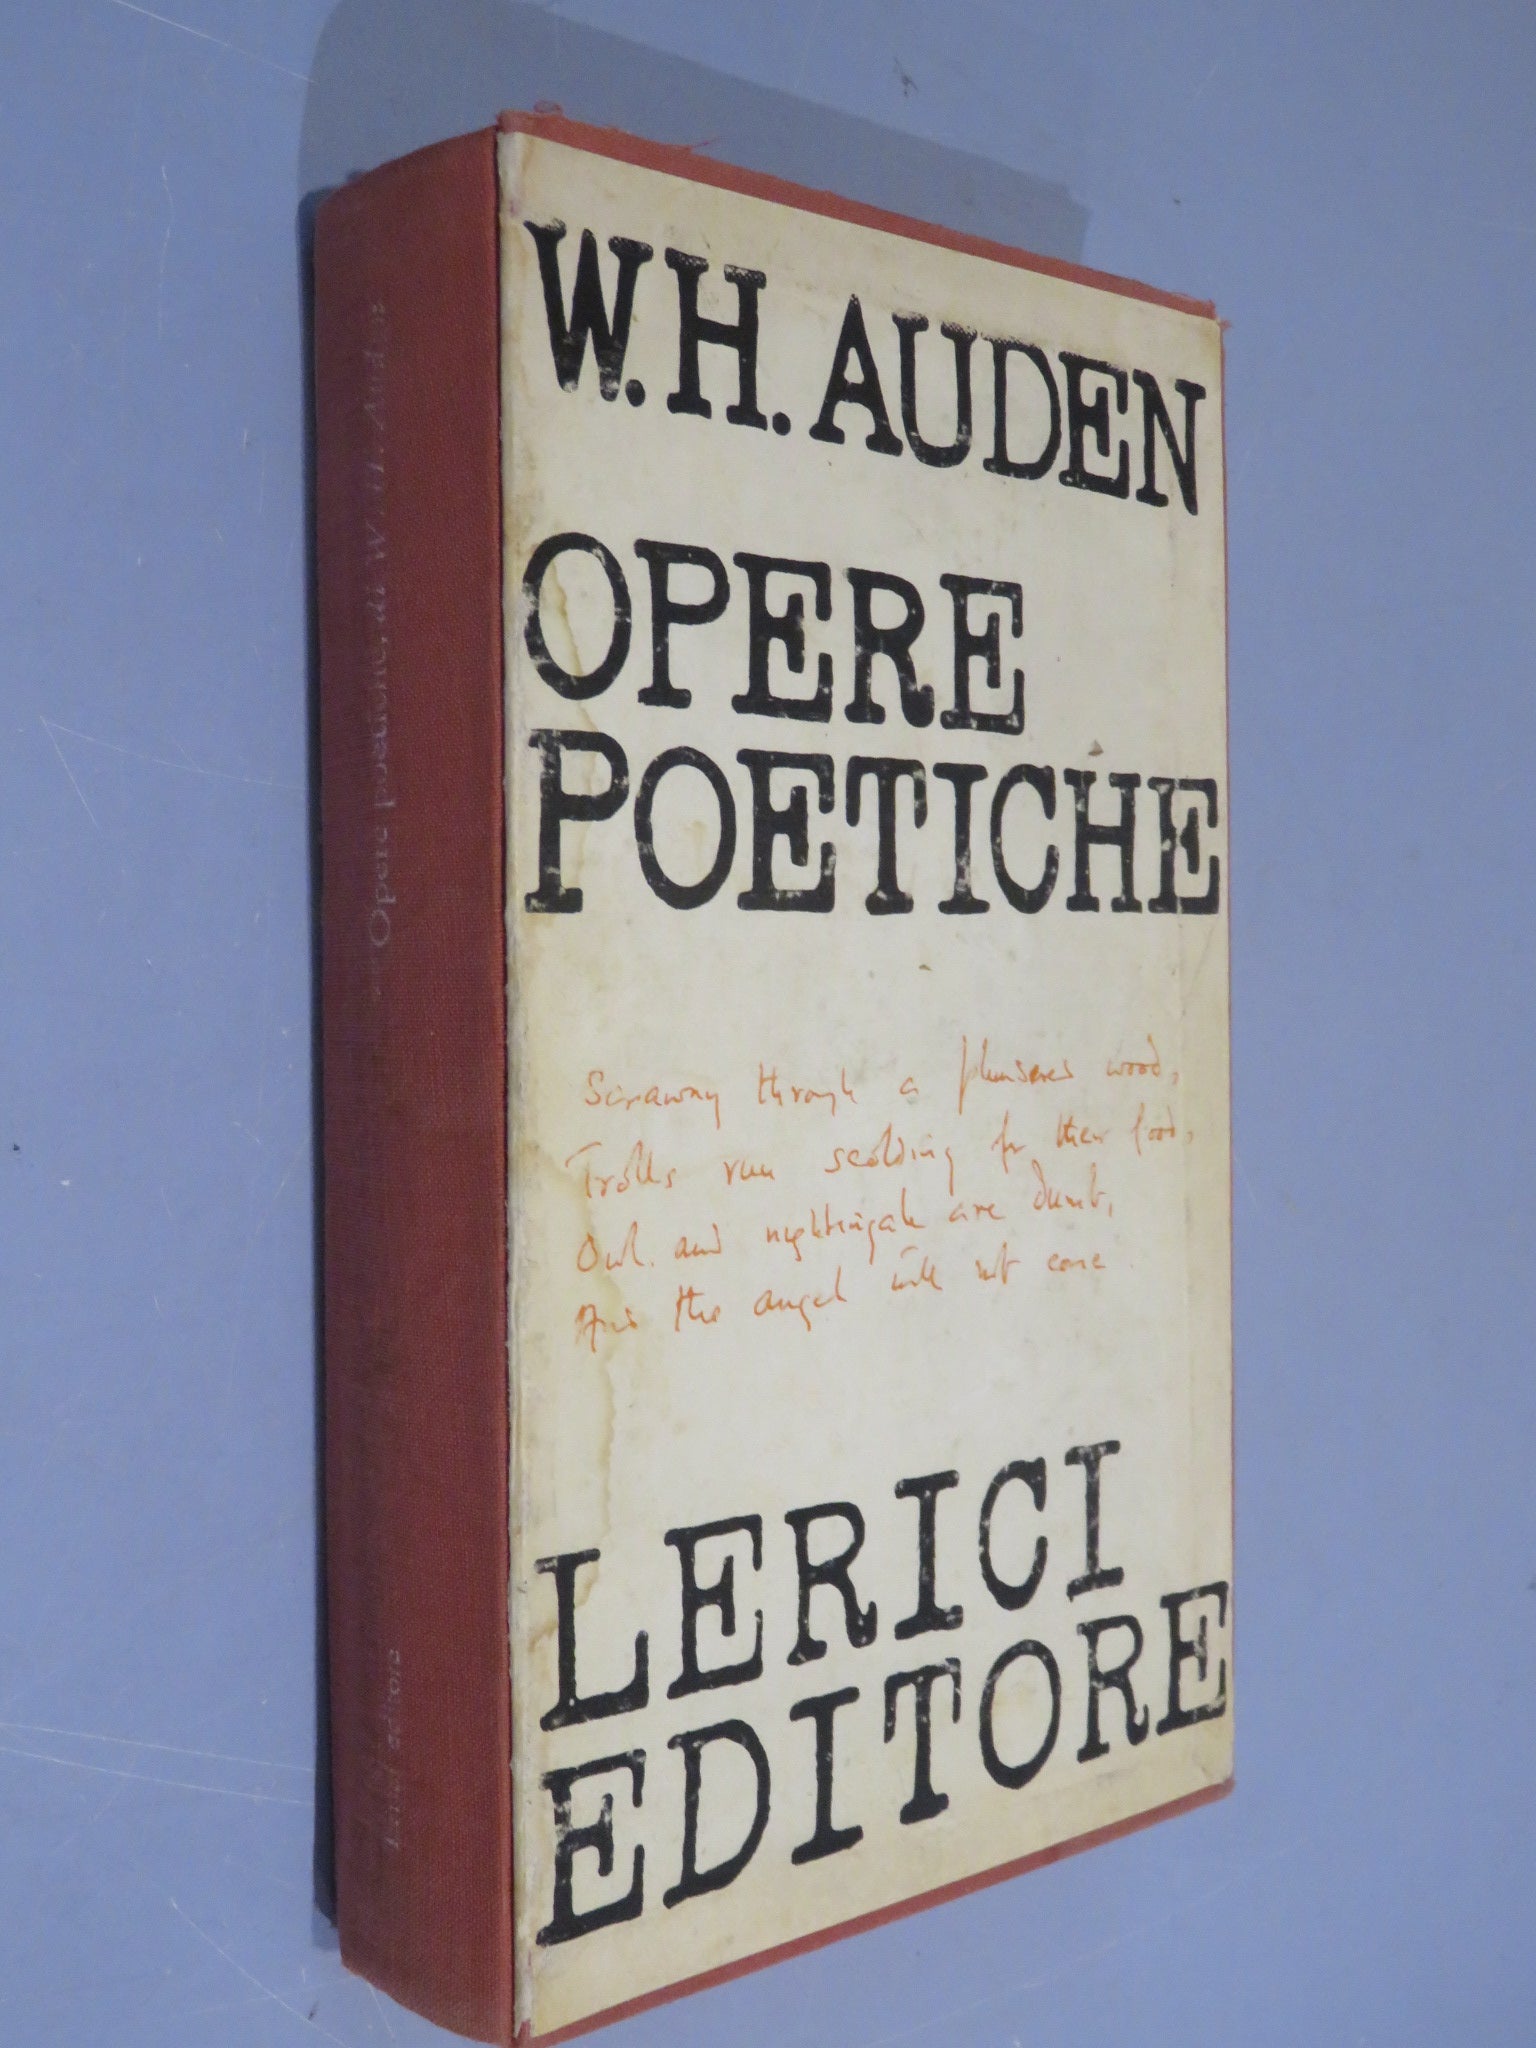 W.H. AUDEN
OPERE
POETICHE
Scrawny through a plundered wood,
Trolls run scolding for their food,
Owl and nightingale are dumb,
And the angel will not come.
LERICI
EDITORE
Opere poetiche, di W. H. Auden
Lerici editore